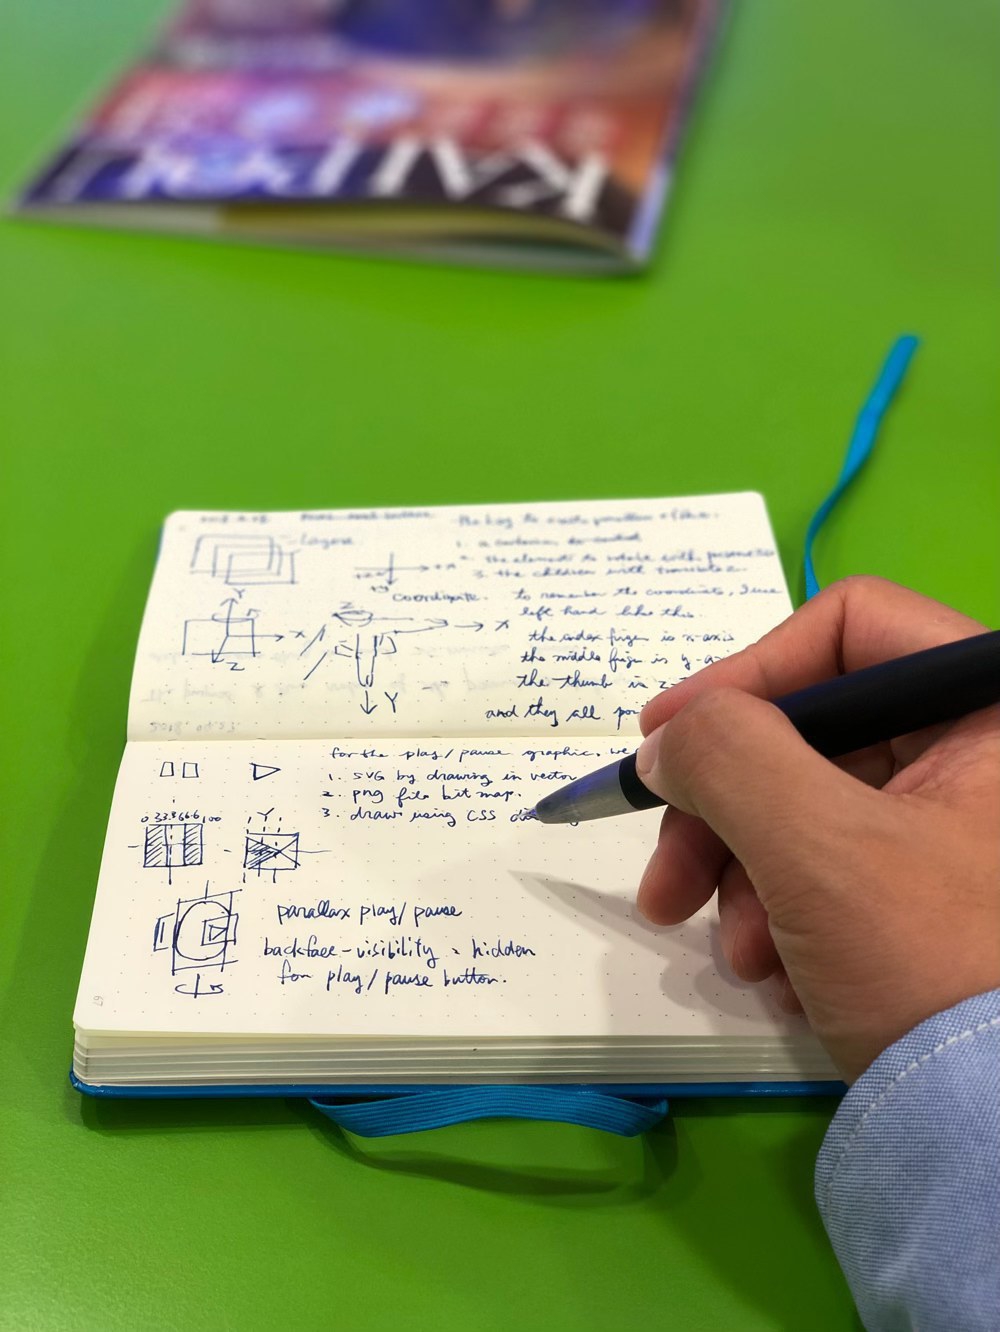 KAI
Layers
The key to create parallax effect.
1. a container to control
2. the elements to rotate with perspective
3. the children with translateZ.
+X
+Y
Coordinate.
to remember the coordinate, I use
left hand like this
Y
X
Z
Z
X
Y
the index finger is x-axis
the middle finger is y-a
the thumb is Z
and they all poi
2018.
for the play/pause graphic, we
1. SVG by drawing in vector
2. png file bit map.
3. draw using CSS di
0 33.3 66.6 100
Y
parallax play/pause
backface-visibility: hidden
for play/pause button.
67